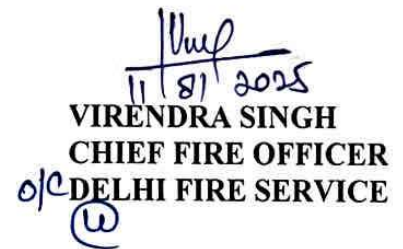 11/8/2025
VIRENDRA SINGH
CHIEF FIRE OFFICER
O/C DELHI FIRE SERVICE